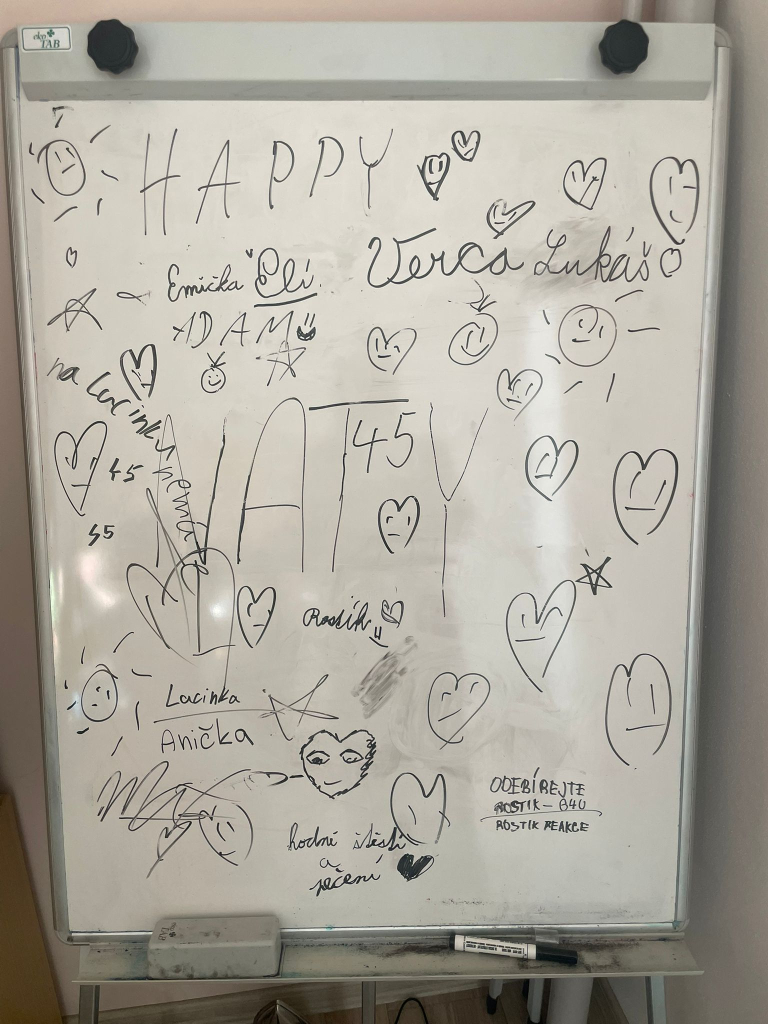 eko TAB
HAPPY
Verča Lukáš
Emička Elí
ADAM
na Lucinku nemá
NATY
45
45
45
Rostík
Lucinka
Anička
ODEBÍREJTE
ROSTIK - B4U
ROSTIK REAKCE
hodně štěstí
a
pečení